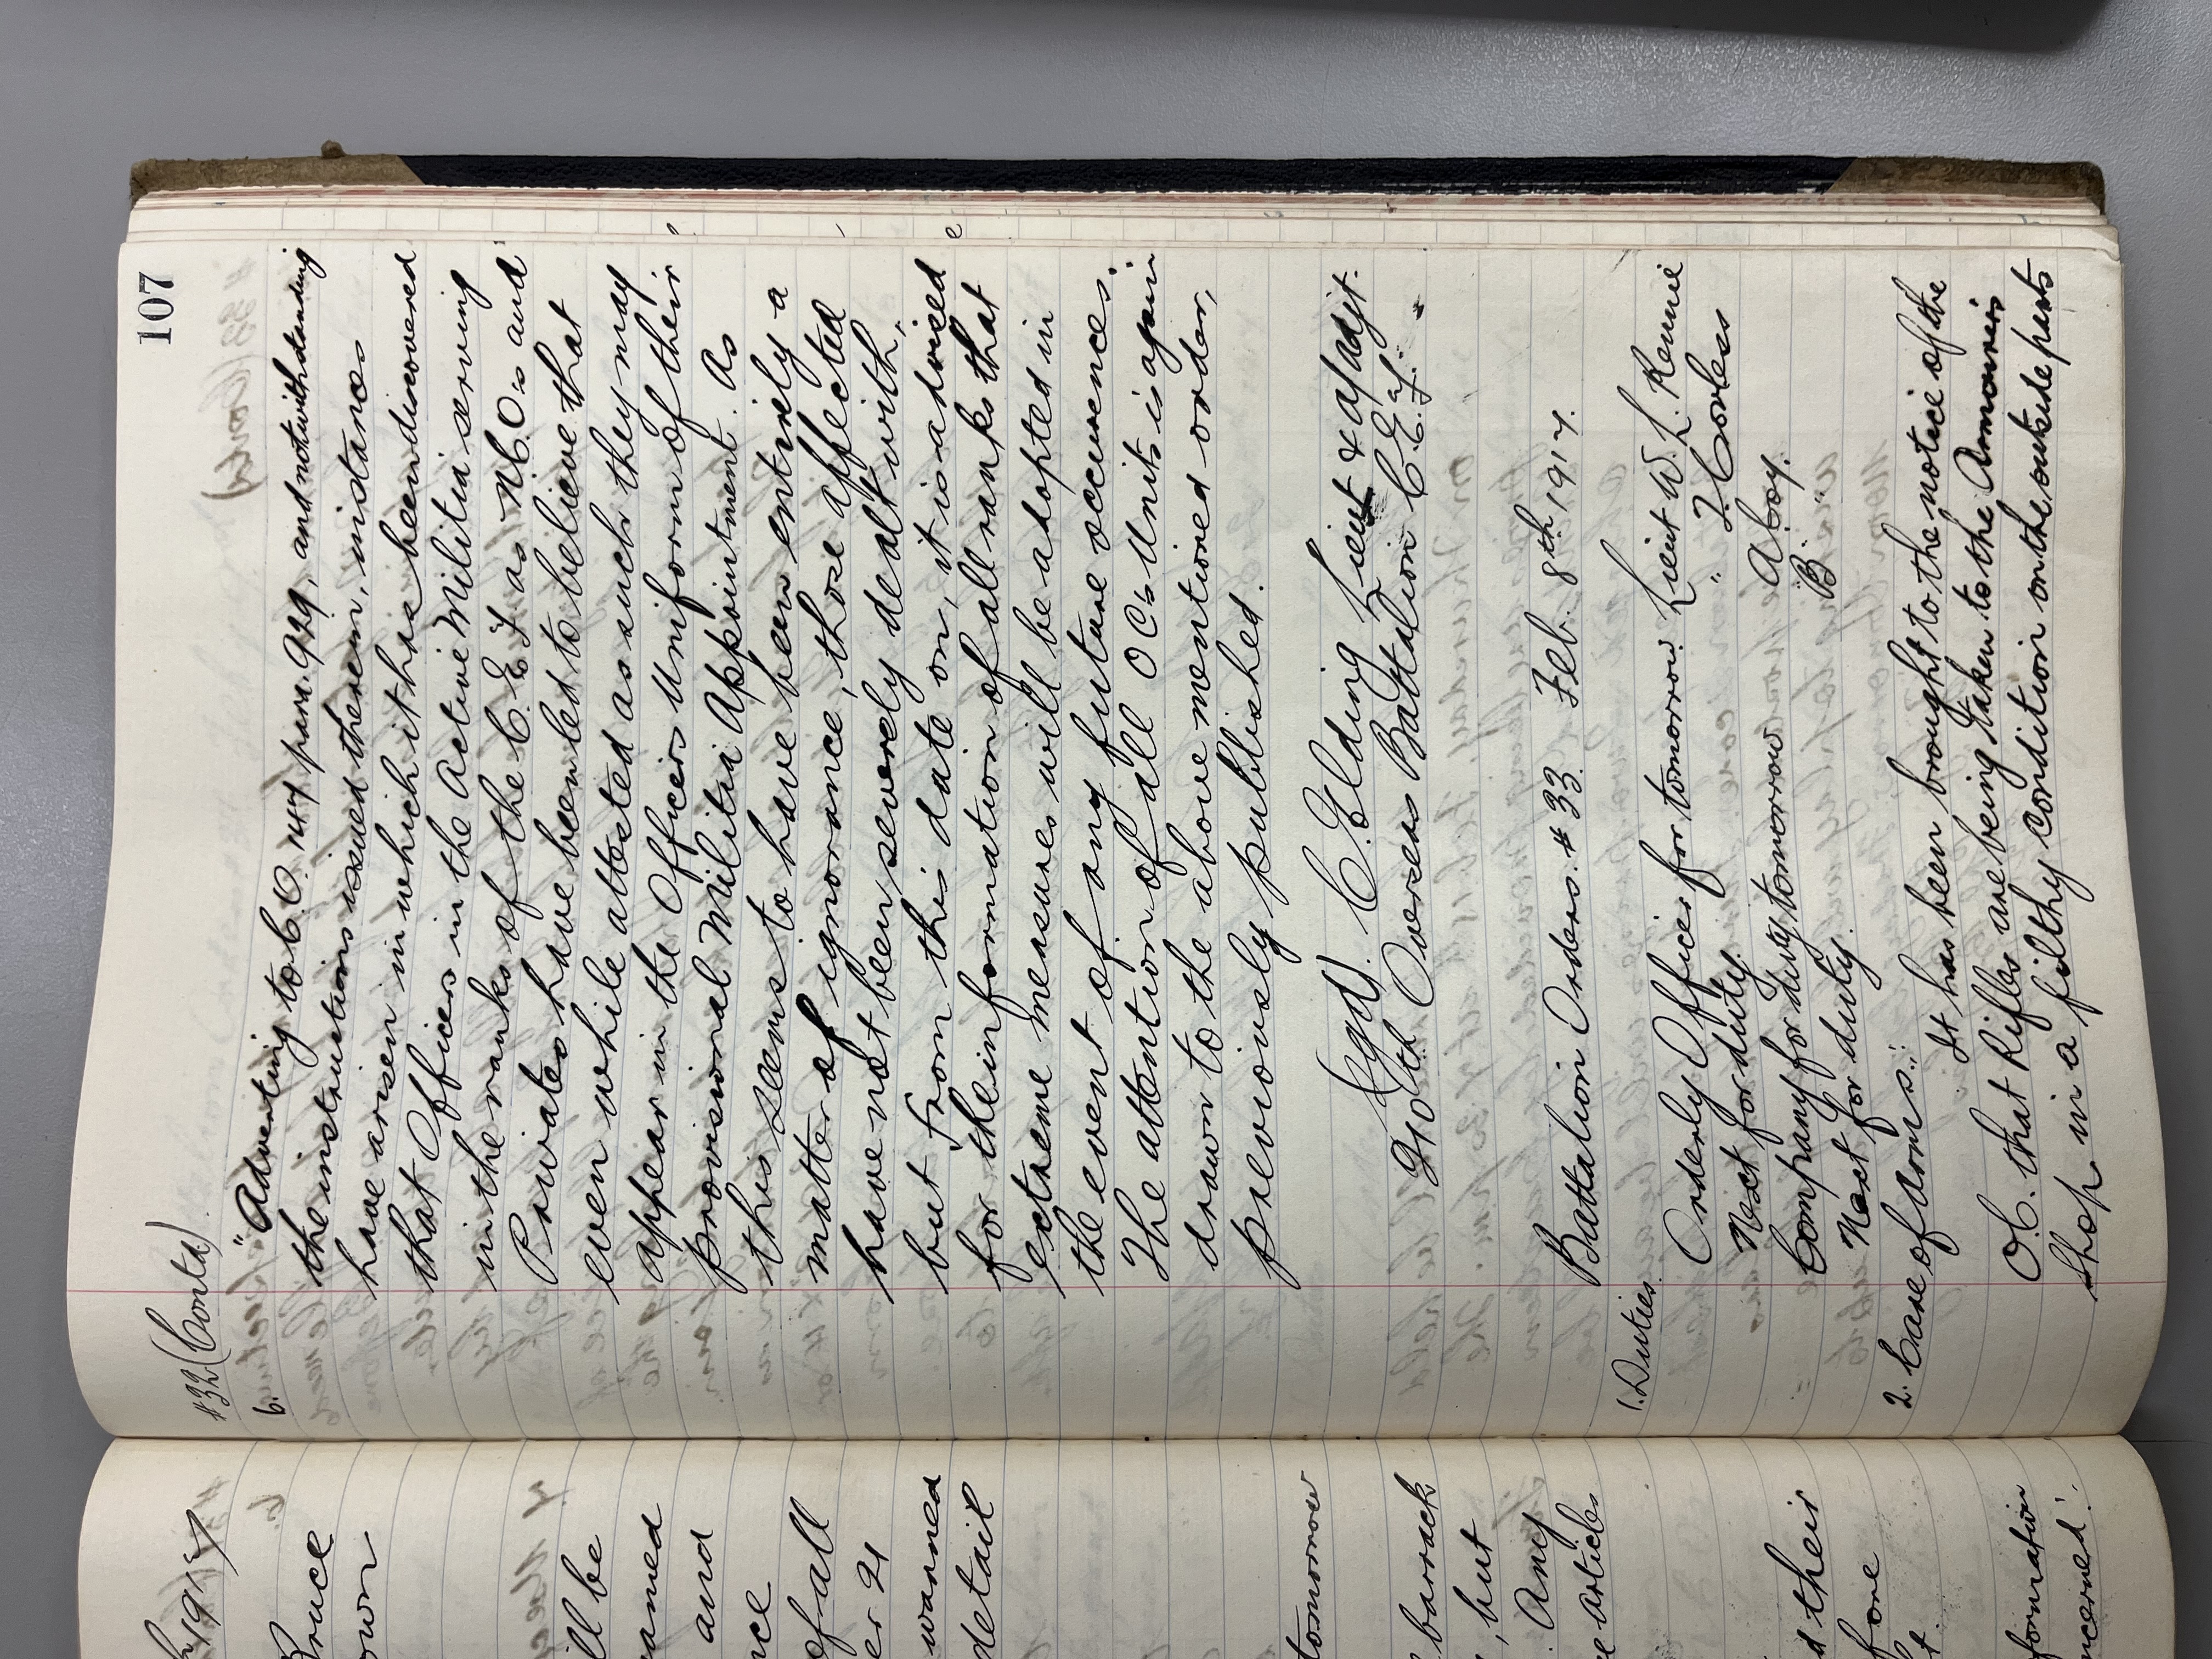 107
#32 (Contd)
6. "Adverting to C.O. 1444 para. 929, and notwithstanding
the instructions issued therein, instances
have arisen in which it has been discovered
that Officers in the Active Militia serving
in the ranks of the C.E.F. as N.C.O's and
Privates have been led to believe that
even while attested as such they may
appear in the Officers Uniform of their
provisional Militia Appointment. As
this seems to have been entirely a
matter of ignorance, those affected
have not been severely dealt with,
but from this date on, it is advised
for the information of all ranks that
extreme measures will be adopted in
the event of any future occurences."
The attention of all OC's Units is again
drawn to the above mentioned order,
previously published.
(Sgd). C. Elding Lieut & a/adjt.
210th Overseas Battalion C.E.F.
Battalion Orders. #33. Feb. 8th 1917.
1. Duties.
Orderly Officer for tomorrow Lieut W. L. Rennie
Next for duty. " J. Corless
Company for duty tomorrow A Coy.
Next for duty. B "
2. Care of arms:- It has been brought to the notice of the
O.C. that Rifles are being taken to the Armourers
Shop in a filthy condition on the outside parts
1917
Bruce
own
ill be
and
of all
er 21
warned
detail
tomorrow
barrack
, but
. Any
articles
d their
fore
formation
ncerned."